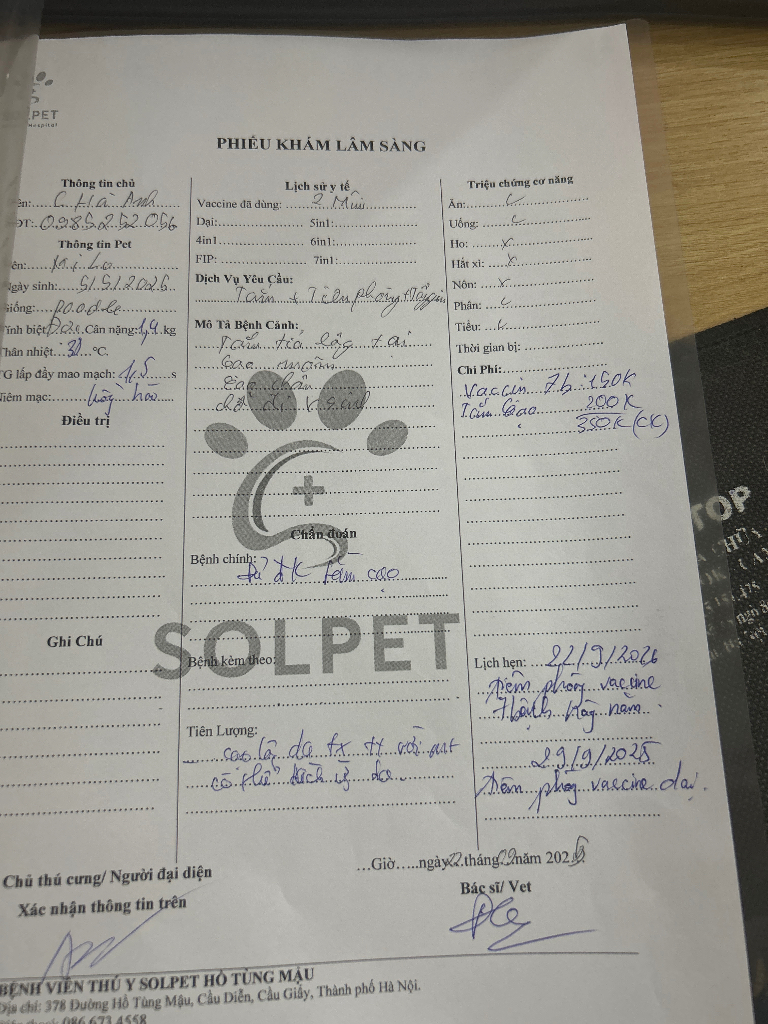 LPET
Hospital
PHIẾU KHÁM LÂM SÀNG
Thông tin chủ
ên: C Hà Anh
ĐT: 0985252056
Thông tin Pet
ên:
Ngày sinh: 5/5/2026
iống: poodle
Tính biệt: Cân nặng: 1,9 kg
Thân nhiệt: °C.
TG lấp đầy mao mạch: 1,5 s
Niêm mạc: hồng hào
Điều trị
Ghi Chú
Lịch sử y tế
Vaccine đã dùng: 2 Mũi
Dại: 5in1:
4in1 6in1:
FIP: 7in1:
Dịch Vụ Yêu Cầu:
Tắm + Tiêm phòng
Mô Tả Bệnh Cảnh:
Tắm tỉa lông tai
Cạo
Cạo chân
Chẩn đoán
Bệnh chính:
Đủ ĐK tắm cạo
SOLPET
Bệnh kèm theo:
Tiên Lượng:
da với
có thể kích ứng da
Triệu chứng cơ năng
Ăn:
Uống:
Ho: x
Hắt xì: x
Nôn: x
Phân:
Tiểu:
Thời gian bị:
Chi Phí:
Vaccin 7b: 150K
Tắm Cạo 200K
350K (CK)
Lịch hẹn: 22/9/2026
tiêm phòng vaccine
7 bệnh hàng năm
29/9/2026
tiêm phòng vaccine dại.
…Giờ…..ngày 22 tháng năm 202
Chủ thú cưng/ Người đại diện
Xác nhận thông tin trên
Bác sĩ/ Vet
BỆNH VIỆN THÚ Y SOLPET HỒ TÙNG MẬU
Địa chỉ: 378 Đường Hồ Tùng Mậu, Cầu Diễn, Cầu Giấy, Thành phố Hà Nội.
086 673 4558
TOP